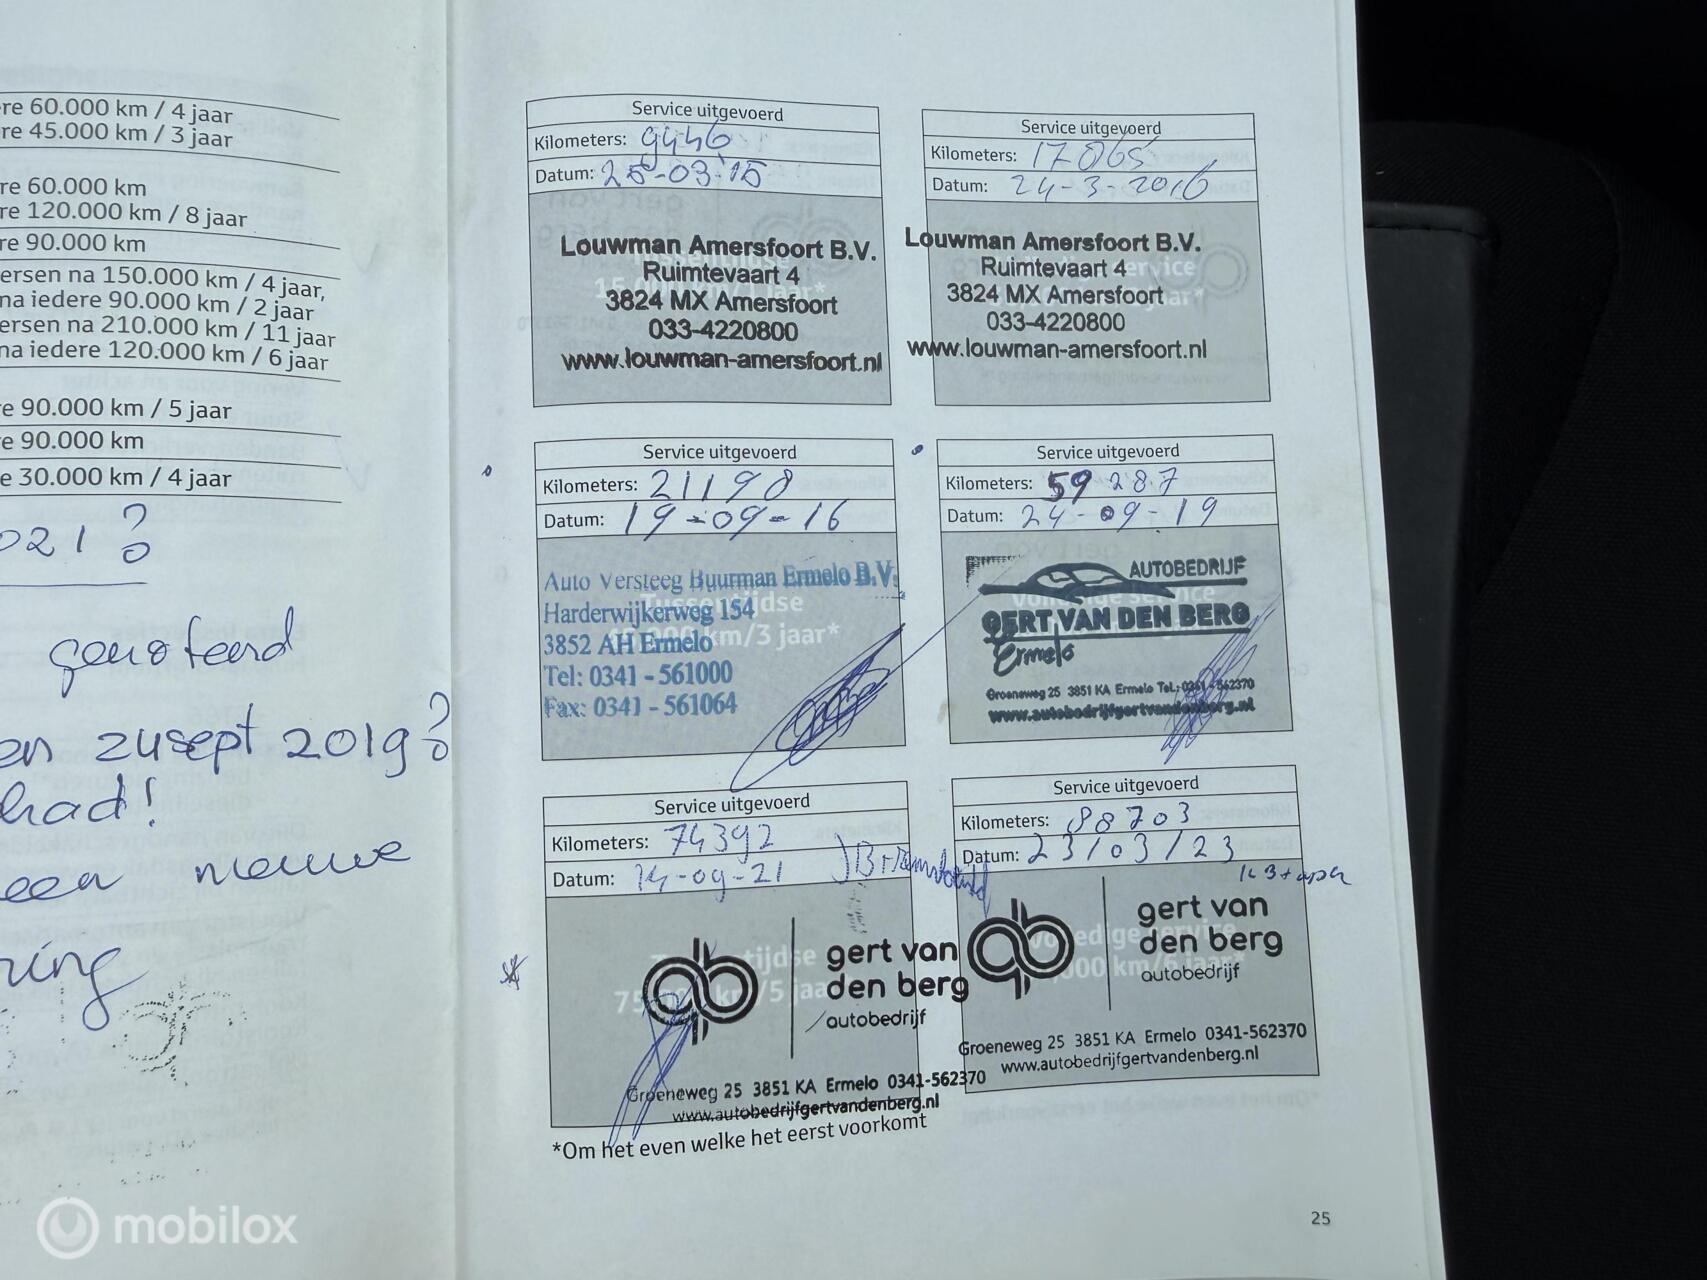 ere 60.000 km / 4 jaar
re 45.000 km / 3 jaar
re 60.000 km
re 120.000 km / 8 jaar
re 90.000 km
ersen na 150.000 km / 4 jaar,
na iedere 90.000 km / 2 jaar
ersen na 210.000 km / 11 jaar
na iedere 120.000 km / 6 jaar
re 90.000 km / 5 jaar
re 90.000 km
e 30.000 km / 4 jaar
021 ?
genoteerd
en 24 sept 2019?
had!
een nieuwe
ring
Service uitgevoerd
Kilometers: 9446
Datum: 25-03-'15
Louwman Amersfoort B.V.
Ruimtevaart 4
3824 MX Amersfoort
033-4220800
www.louwman-amersfoort.nl
Service uitgevoerd
Kilometers: 17065
Datum: 24-3-2016
Louwman Amersfoort B.V.
Ruimtevaart 4
3824 MX Amersfoort
033-4220800
www.louwman-amersfoort.nl
Service uitgevoerd
Kilometers: 21198
Datum: 19-09-16
Auto Versteeg Buurman Ermelo B.V.
Harderwijkerweg 154
3852 AH Ermelo
Tel: 0341 - 561000
Fax: 0341 - 561064
Service uitgevoerd
Kilometers: 59 287
Datum: 24-09-19
AUTOBEDRIJF
GERT VAN DEN BERG
Ermelo
Groeneweg 25 3851 KA Ermelo Tel.: 0341 - 562370
www.autobedrijfgertvandenberg.nl
Service uitgevoerd
Kilometers: 74392
Datum: 14-09-21
gert van
den berg
autobedrijf
Groeneweg 25 3851 KA Ermelo 0341-562370
www.autobedrijfgertvandenberg.nl
Service uitgevoerd
Kilometers: 88703
Datum: 23/03/23
gert van
den berg
autobedrijf
Groeneweg 25 3851 KA Ermelo 0341-562370
www.autobedrijfgertvandenberg.nl
*Om het even welke het eerst voorkomt
25
mobilox